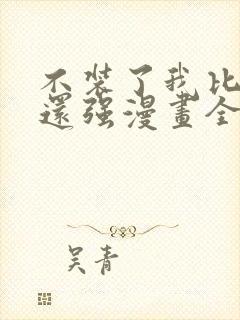 不装了我比
還强漫畫全
吴青